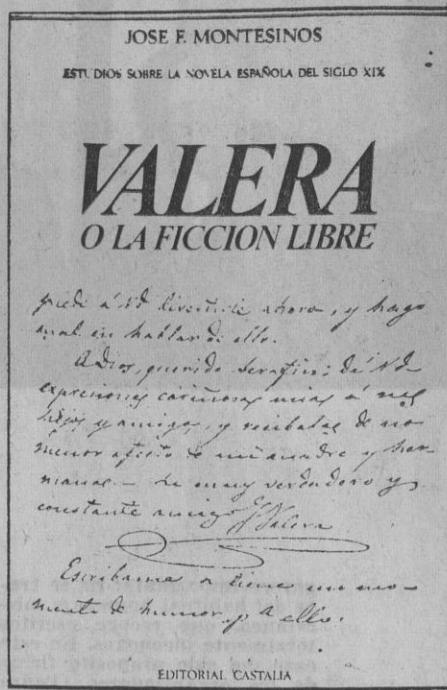 JOSE F. MONTESINOS
ESTUDIOS SOBRE LA NOVELA ESPAÑOLA DEL SIGLO XIX
VALERA
O LA FICCION LIBRE
á Vd ahora, y hago
mal en hablar de ello.
Adios, querido Serafin: dé Vd
expresiones cariñosas mias á
hijos y amigos, y recíbalas de no
menor afecto de mi madre y her
manas. Su muy verdadero y
constante amigo J Valera
Escribame si tiene un mo
mento de humor p.ª ello.
EDITORIAL CASTALIA